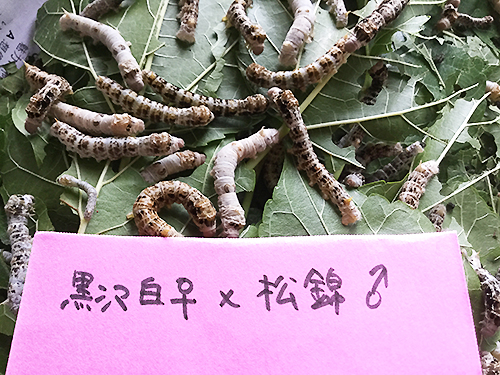 黒沢白♀ × 松錦 ♂